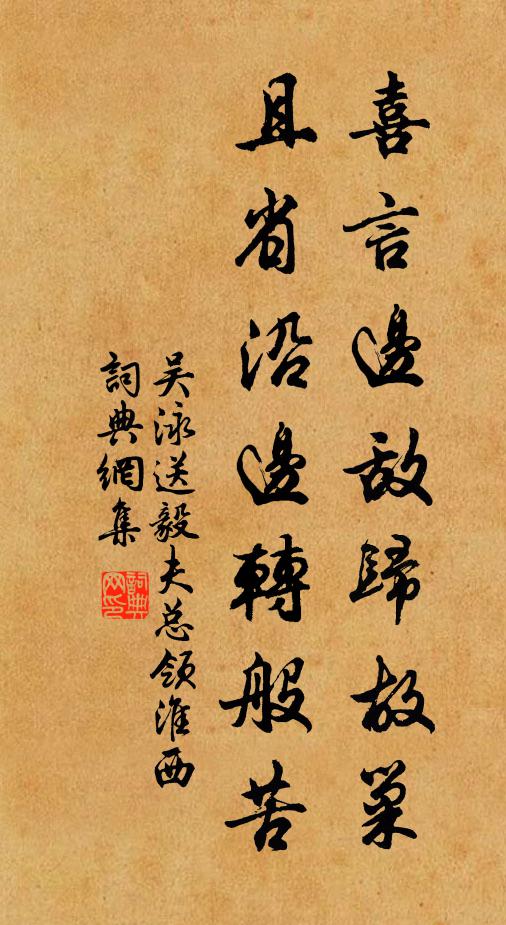 喜言邊敌歸故巢
且省沿邊轉般苦
吴泳送毅夫总领淮西
詞典網集
詞典网印